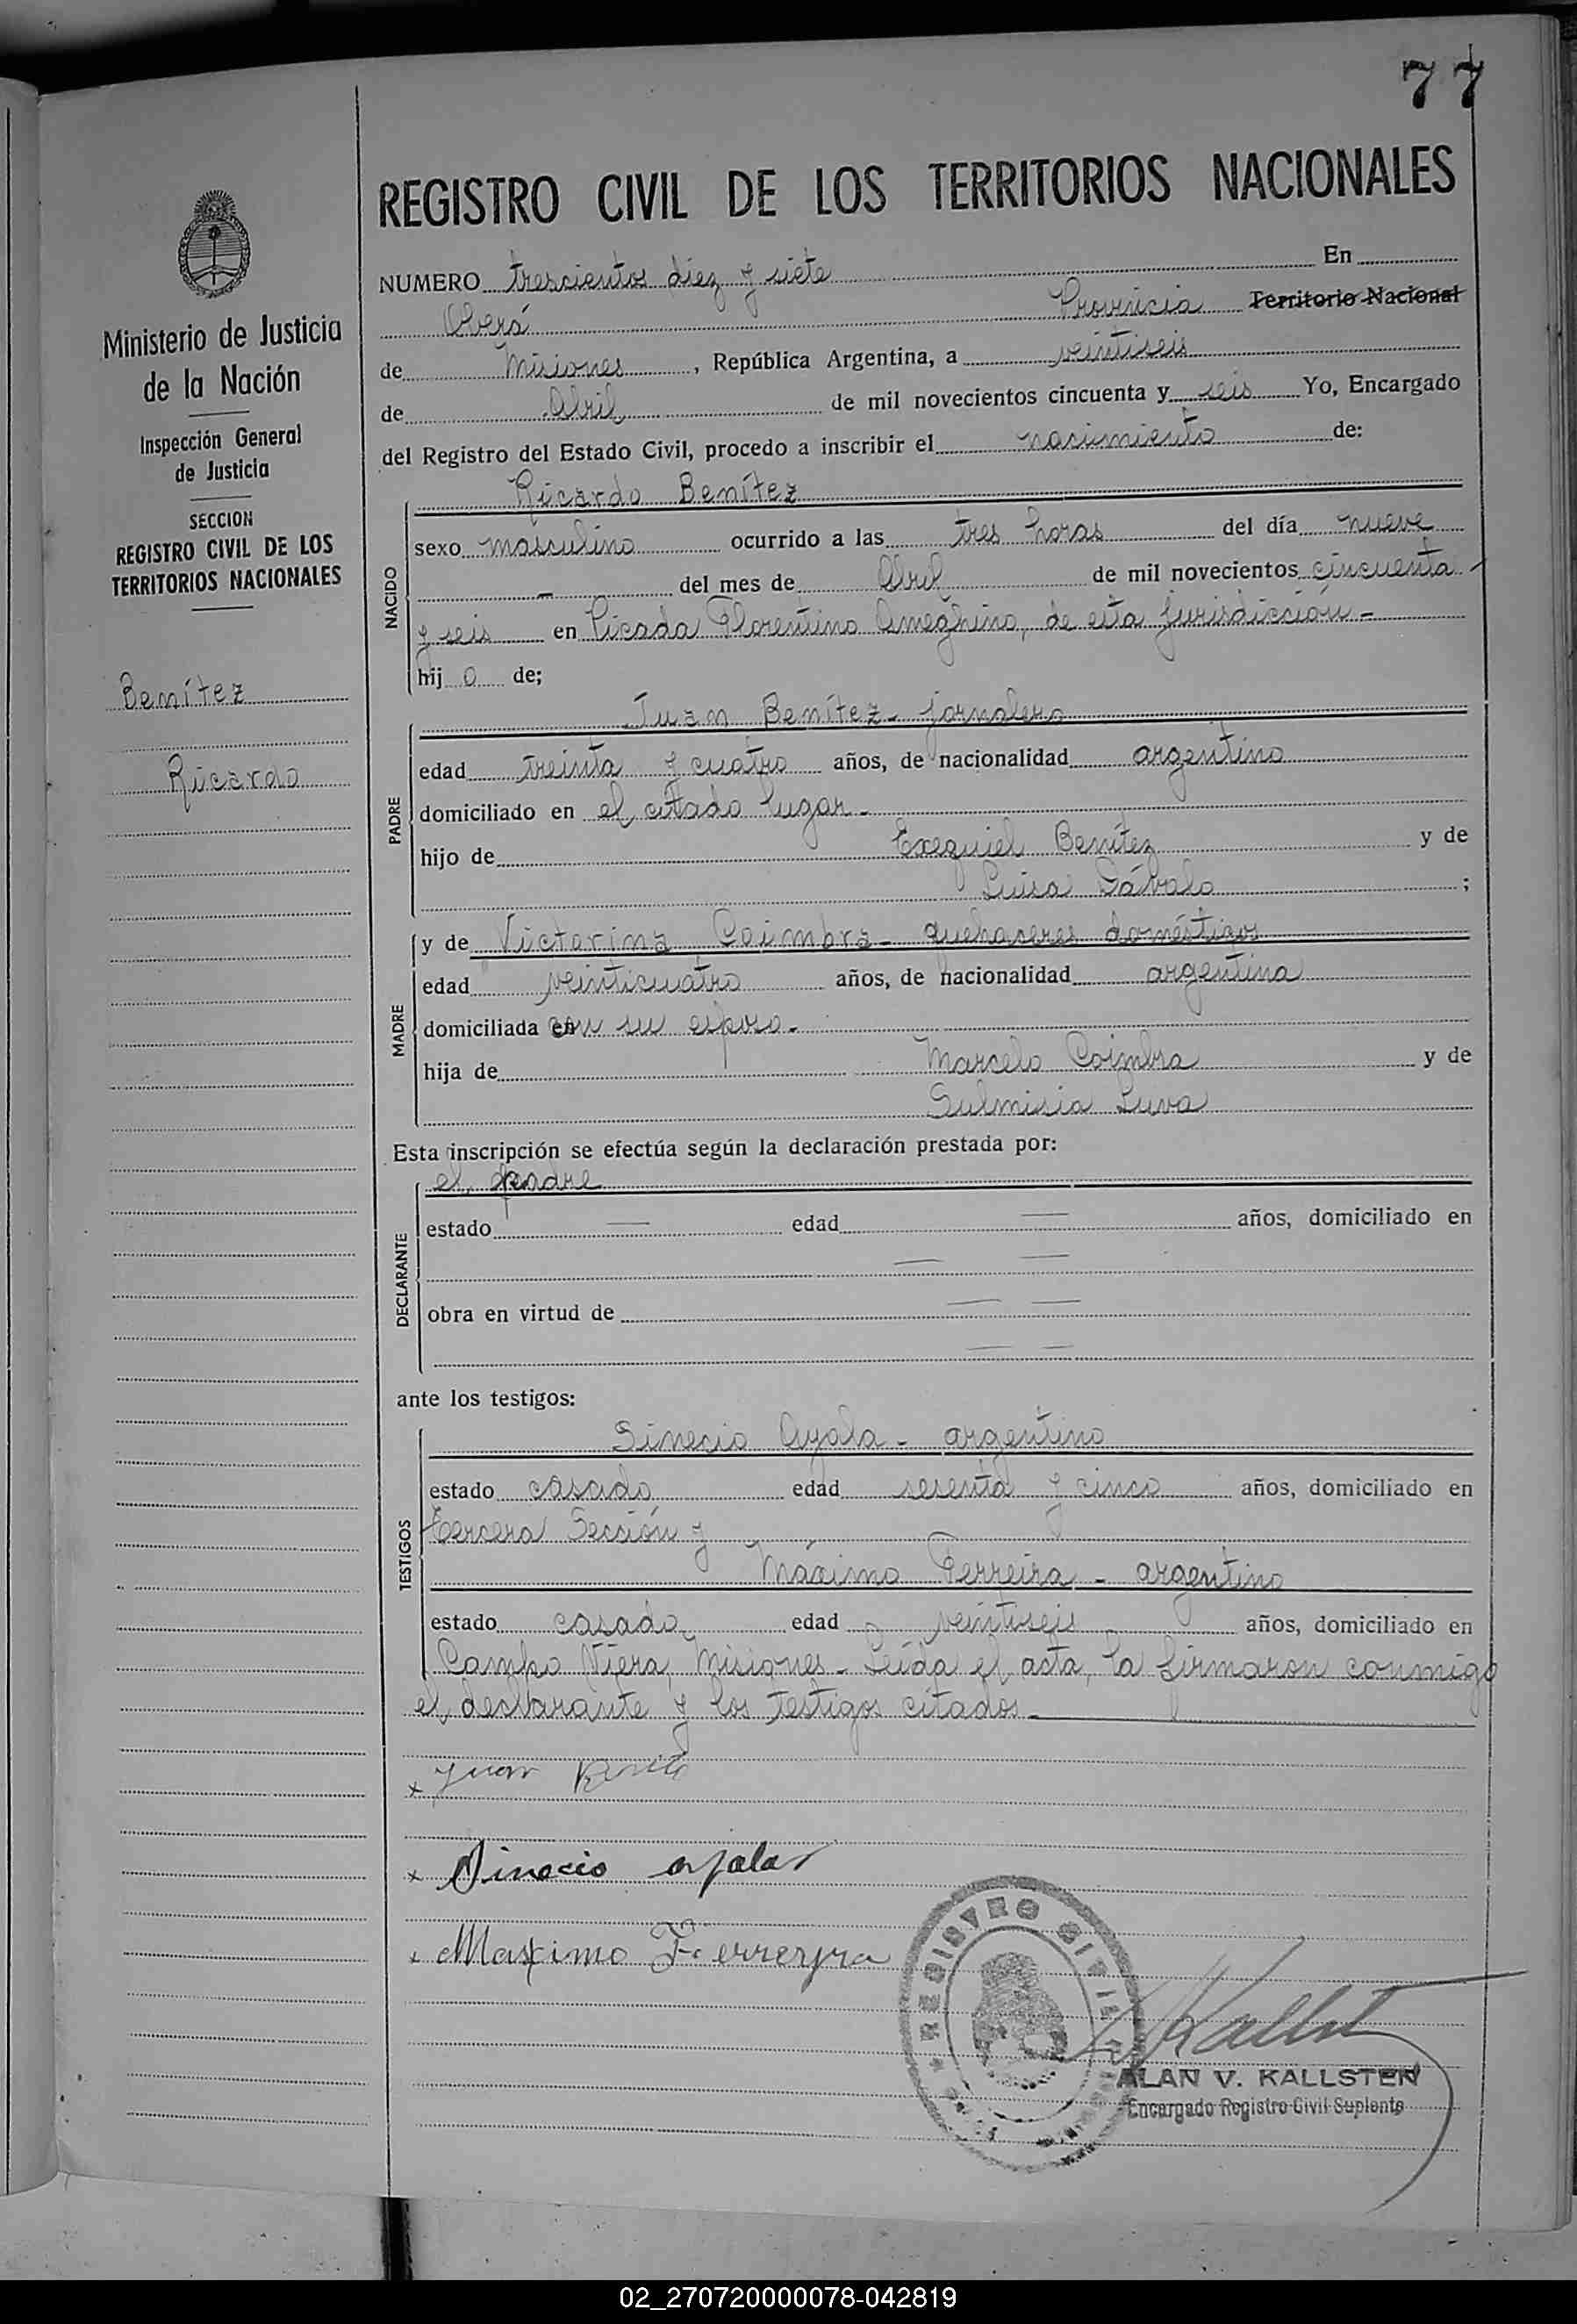 77
REGISTRO CIVIL DE LOS TERRITORIOS NACIONALES
Ministerio de Justicia
de la Nación
Inspección General
de Justicia
SECCION
REGISTRO CIVIL DE LOS
TERRITORIOS NACIONALES
Benítez
Ricardo
NUMERO trescientos diez y siete En
Oberá Provincia Territorio Nacional
de Misiones, República Argentina, a veintiseis
de Abril de mil novecientos cincuenta y seis Yo, Encargado
del Registro del Estado Civil, procedo a inscribir el nacimiento de:
NACIDO
Ricardo Benítez
sexo masculino ocurrido a las tres horas del día nueve
- del mes de Abril de mil novecientos cincuenta
y seis en Picada Florentino Ameghino, de esta jurisdicción -
hij o de;
PADRE
Juan Benítez - jornalero
edad treinta y cuatro años, de nacionalidad argentino
domiciliado en el citado lugar -
hijo de Exequiel Benítez y de
Luisa ;
MADRE
y de Victorina Coimbra - quehaceres domésticos
edad veinticuatro años, de nacionalidad argentina
domiciliada en con su esposo -
hija de Marcelo Coimbra y de
Esta inscripción se efectúa según la declaración prestada por:
DECLARANTE
el padre
estado — edad — años, domiciliado en
— —
obra en virtud de — —
— —
ante los testigos:
TESTIGOS
Sinecio Ayala - argentino
estado casado edad sesenta y cinco años, domiciliado en
Tercera Sección y
Máximo Ferreira - argentino
estado casado edad veintiseis años, domiciliado en
Campo Viera, Misiones - Leída el acta, la firmaron conmigo
el declarante y los testigos citados -
x Juan
x Sinecio ayala
x Maximo Ferreyra
REGISTRO CIVIL
ALAN V. KALLSTEN
Encargado Registro Civil Suplente
02_270720000078-042819